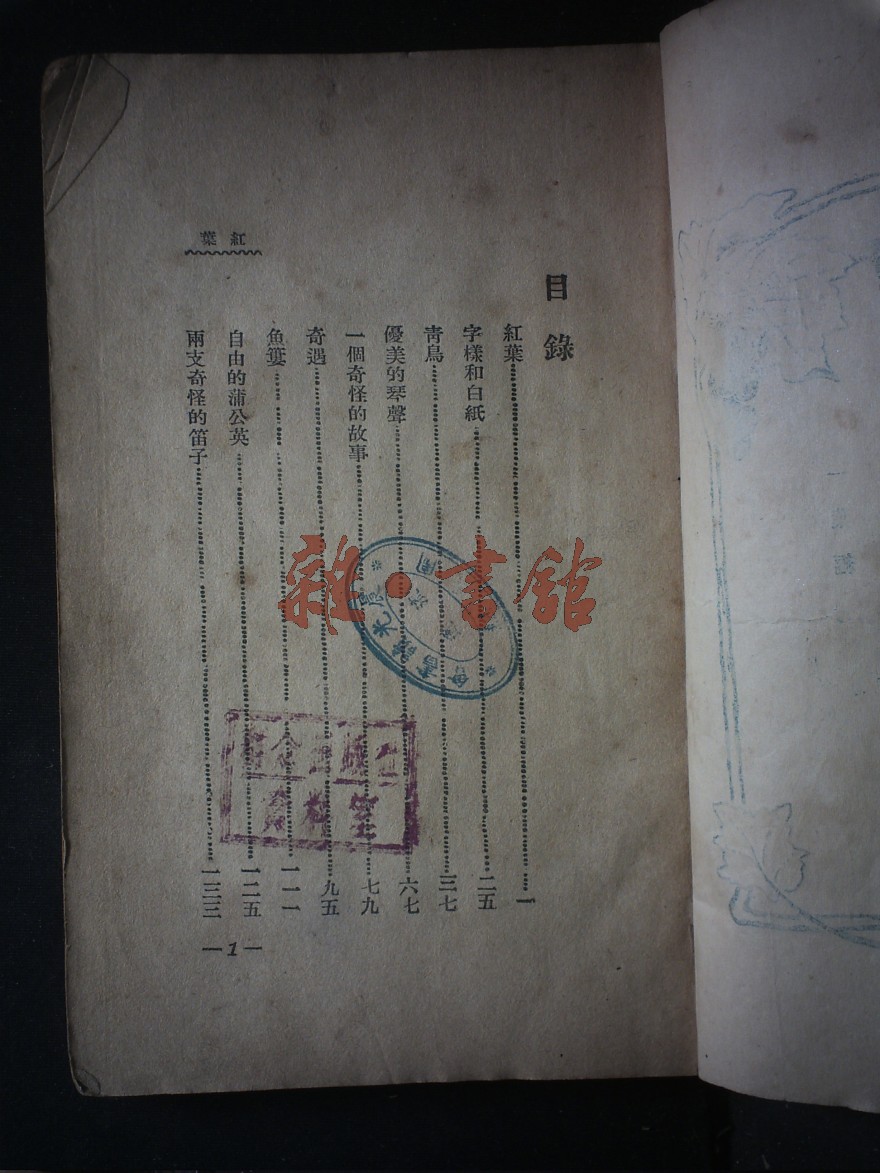 紅葉
目錄
紅葉……一
字樣和白紙……二五
青鳥……三七
優美的琴聲……六七
一個奇怪的故事……七九
奇遇……九五
魚簍……一一一
自由的蒲公英……一二五
兩支奇怪的笛子……一三三
—1—
雜·書館
資料室